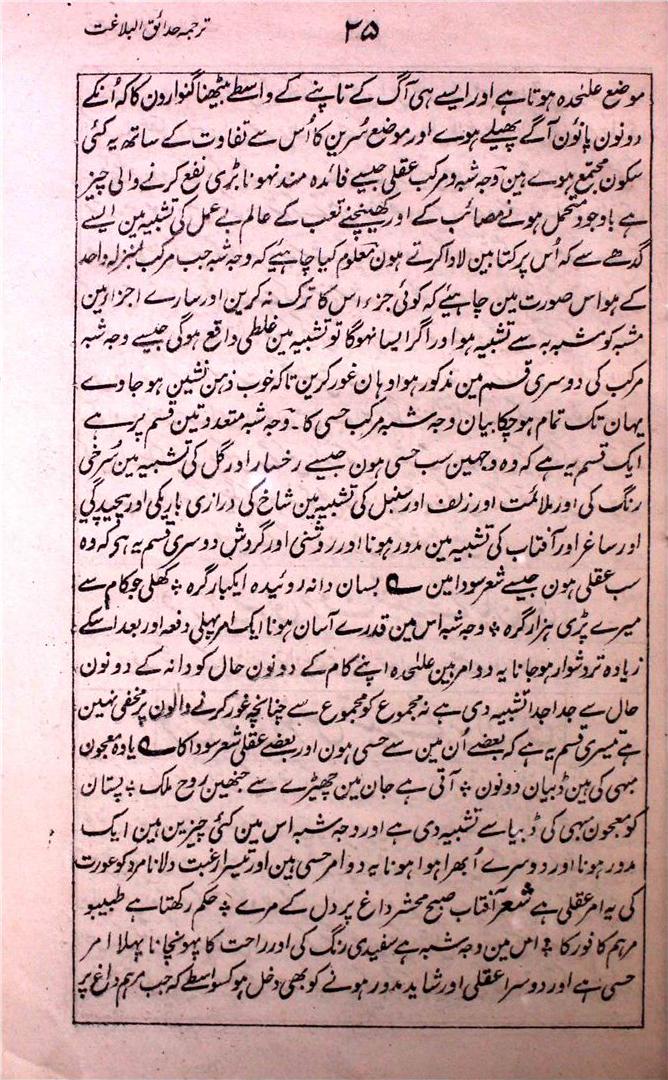 ۲۵
ترجمہ حدائق البلاغت
موضع علیٰحدہ ہوتا ہے اور ایسے ہی آگ کے تاپنے کے واسطے بیٹھنا گنوارون کا کہ اُنکے
دونون پانؤن آگے پھیلے ہوے اور موضع سُرین کا اُس سے تفاوت کے ساتھ یہ کئی
سکون مجتمع ہوے ہین وجہ شبہ مرکب عقلی جیسے فائدہ مند نہونا بڑی نفع کرنے والی چیز
سے باوجود متحمل ہونے مصائب کے اور کھینچنے تعب کے عالم بے عمل کی تشبیہ مین ایسے
گدھے سے کہ اُس پر کتابین لادا کرتے ہون معلوم کیا چاہیے کہ وجہ شبہ جب مرکب بمنزلہ واحد
کے ہو اس صورت مین چاہیے کہ کوئی جزء اس کا ترک نہ کرین اور سارے اجزا مین
مشبہ کو مشبہ بہ سے تشبیہ ہو اور اگر ایسا نہوگا تو تشبیہ مین غلطی واقع ہوگی جیسے وجہ شبہ
مرکب کی دوسری قسم مین مذکور ہوا وہان غور کرین تاکہ خوب ذہن نشین ہو جاوے
یہان تک تمام ہو چکا بیان وجہ شبہ مرکب حسی کا ۔ وجہ شبہ متعدد تین قسم پر ہے
ایک قسم یہ ہے کہ وہ وجہین سب حسی ہون جیسے رخسار اور گل کی تشبیہ مین سُرخی
رنگ کی اور ملائمت اور زلف اور سنبل کی تشبیہ مین شاخ کی درازی باریکی اور پیچیدگی
اور ساغر اور آفتاب کی تشبیہ مین مدور ہونا اور روشنی اور گردش دوسری قسم یہ ہی کہ وہ
سب عقلی ہون جیسے شعر سودا مین ؎ بسان دانہ روئیدہ ایکبار گرہ ؞ کھلی جو کام سے
میرے پڑی ہزار گرہ ؞ وجہ شبہ اس مین قدرے آسان ہونا ایک امر پہلی دفعہ اور بعد اسکے
زیادہ تر دشوار ہو جانا یہ دو امر ہین علیٰحدہ اپنے کام کے دونون حال کو دانہ کے دونون
حال سے جدا جدا تشبیہ دی ہے نہ مجموع کو مجموع سے چنانچہ غور کرنے والون پر مخفی نہین
ہے تیسری قسم یہ ہے کہ بعضے اُن مین سے حسی ہون اور بعضے عقلی شعر سودا کا ؎ یا دہ معجون
مبہی کی ہین ڈبیان دونون ؞ آتی ہے جان مین چھیڑے سے جنھین روح ملک ؞ پستان
کو معجون مبہی کی ڈبیا سے تشبیہ دی ہے اور وجہ شبہ اس مین کئی چیزین ہین ایک
مدور ہونا اور دوسرے اُبھرا ہوا ہونا یہ دو امر حسی ہین اور تیسرا رغبت دلانا مرد کو عورت
کی یہ امر عقلی ہے شعر آفتاب صبح محشر داغ پر دل کے مرے ؞ حکم رکھتا ہے طبیبو
مرہم کافور کا ؞ اس مین وجہ شبہ ہے سفیدی رنگ کی اور راحت کا پہونچانا پہلا امر
حسی ہے اور دوسرا عقلی اور شاید مدور ہونے کو بھی دخل ہو کسواسطے کہ جب مرہم داغ پر